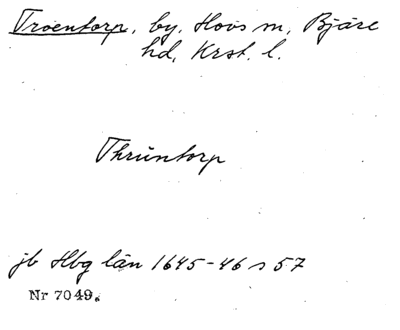 Troentorp, by. Hovs sn, Bjäre
hd, Krst. l.
Thruntorp
jb Hbg län 1645-46 s 57
Nr 7049.